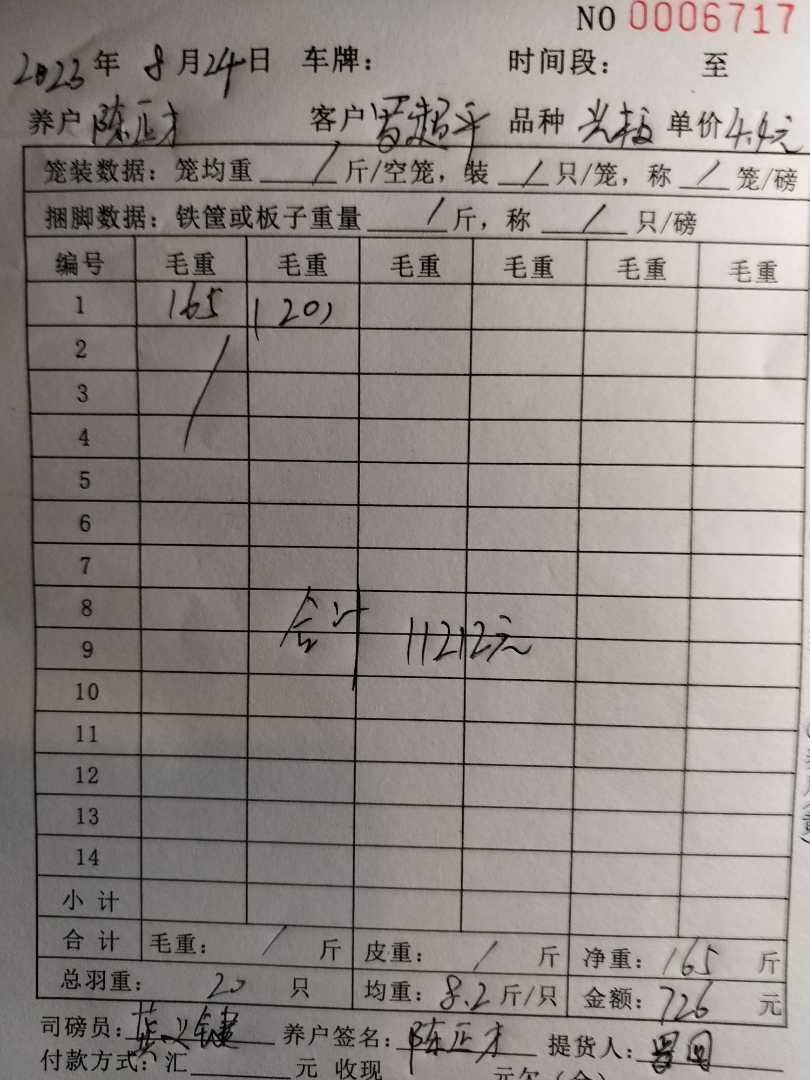 NO 0006717
2023年 8月24日 车牌: 时间段: 至
养户 陈正才 客户 曾超平 品种 单价 4.4元
笼装数据: 笼均重 / 斤/空笼, 装 / 只/笼, 称 / 笼/磅
捆脚数据: 铁筐或板子重量 / 斤, 称 / 只/磅
编号 毛重 毛重 毛重 毛重 毛重 毛重
1 165 (20)
2
3
4
5
6
7
8
9
合计 11212元
10
11
12
13
14
小 计
合 计 毛重: / 斤 皮重: / 斤 净重: 165 斤
总羽重: 20 只 均重: 8.2 斤/只 金额: 726 元
司磅员: 养户签名: 陈正才 提货人:
付款方式: 汇 元 收现 元欠(余)